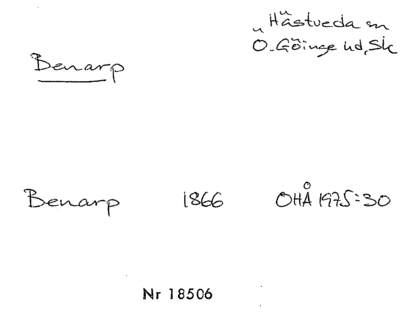 Hästveda sn
Ö. Göinge hd, Sk
Benarp
Benarp 1866 OHÅ 1975:30
Nr 18506